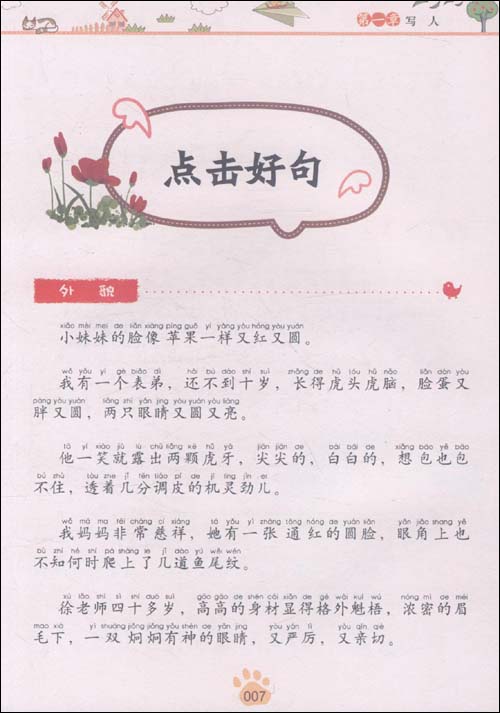 第一章 写人
点击好句
外貌
xiǎo mèi mei de liǎn xiàng píng guǒ yí yàng yòu hóng yòu yuán
小妹妹的脸像苹果一样又红又圆。
wǒ yǒu yí gè biǎo dì hái bú dào shí suì zhǎng de hǔ tóu hǔ nǎo liǎn dàn yòu
我有一个表弟，还不到十岁，长得虎头虎脑，脸蛋又
pàng yòu yuán liǎng zhī yǎn jing yòu yuán yòu liàng
胖又圆，两只眼睛又圆又亮。
tā yí xiào jiù lù chū liǎng kē hǔ yá jiān jiān de bái bái de xiǎng bāo yě bāo
他一笑就露出两颗虎牙，尖尖的，白白的，想包也包
bú zhù tòu zhe jǐ fēn tiáo pí de jī líng jìn er
不住，透着几分调皮的机灵劲儿。
wǒ mā ma fēi cháng cí xiáng tā yǒu yì zhāng tōng hóng de yuán liǎn yǎn jiǎo shang yě
我妈妈非常慈祥，她有一张通红的圆脸，眼角上也
bù zhī hé shí pá shàng le jǐ dào yú wěi wén
不知何时爬上了几道鱼尾纹。
xú lǎo shī sì shí duō suì gāo gāo de shēn cái xiǎn de gé wài kuí wú nóng mì de méi
徐老师四十多岁，高高的身材显得格外魁梧，浓密的眉
mao xià yì shuāng jiǒng jiǒng yǒu shén de yǎn jing yòu yán lì yòu qīn qiè
毛下，一双炯炯有神的眼睛，又严厉，又亲切。
007